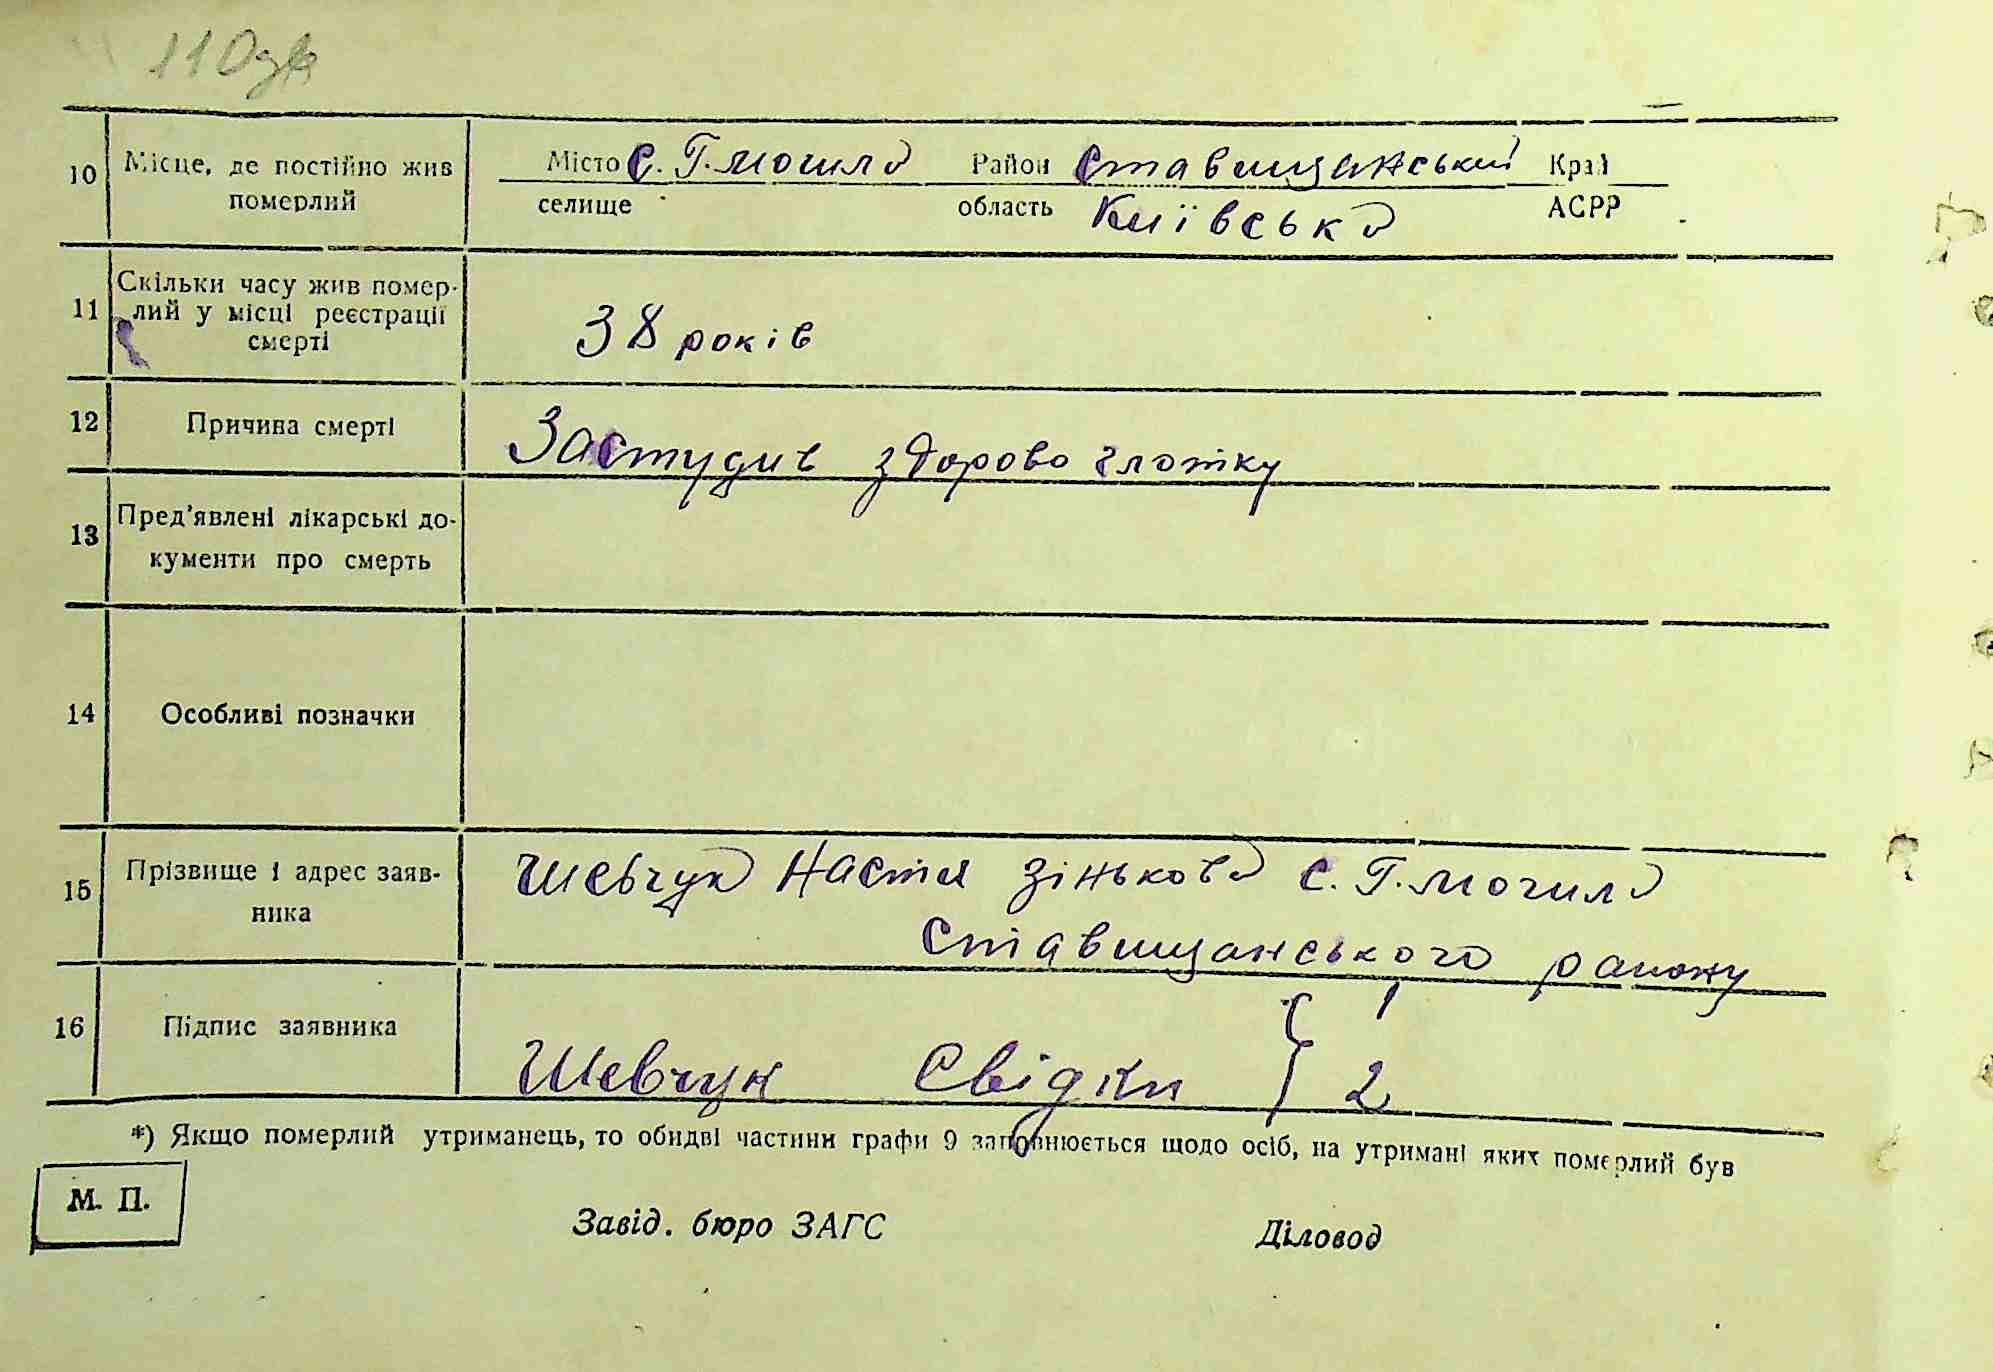 110зв
10 Місце, де постійно жив померлий Місто с. Г. могила Район Ставищанський Край
селище область Київська АСРР
11 Скільки часу жив помер-
лий у місці реєстрації
смерті 38 років
12 Причина смерті Застудив здорово глотку
13 Пред'явлені лікарські до-
кументи про смерть
14 Особливі позначки
15 Прізвище і адрес заяв-
ника Шевчук Настя Зінькова с. Г. могила
Ставищанського району
16 Підпис заявника Шевчук Свідки { 1
2
*) Якщо померлий утриманець, то обидві частини графи 9 заповнюється щодо осіб, на утримані яких померлий був
М. П.
Завід. бюро ЗАГС Діловод